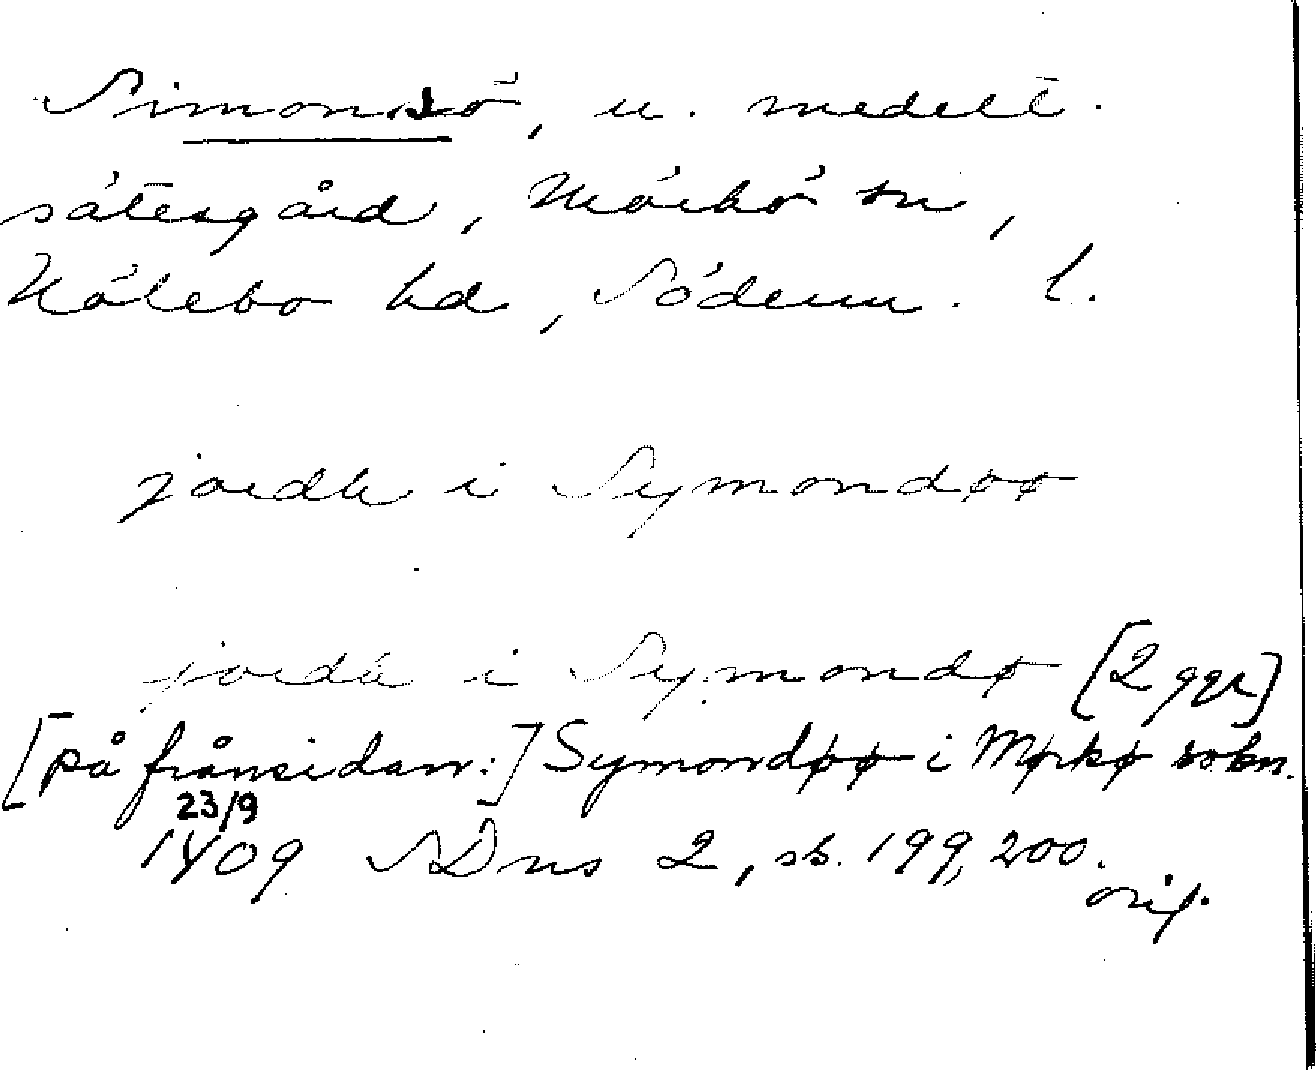 Simonsö, u. medelt.
sätesgård, Mörkö sn,
Hölebo hd, Söderm. l.
jordh i Symondøø
jordh i Symondø [2 ggr]
[på frånsidan:] Symondøø i Mørkø sokn.
23/9
1409 SDns 2, sb. 199, 200.
orig.